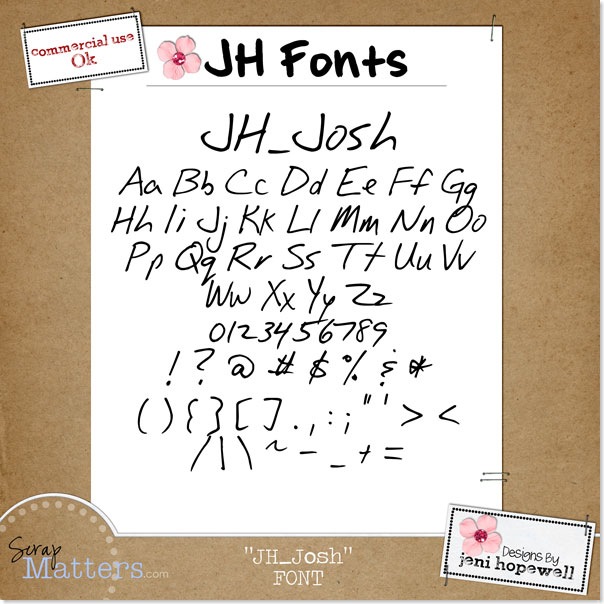 commercial use
Ok
JH Fonts
JH_Josh
Aa Bb Cc Dd Ee Ff Gg
Hh Ii Jj Kk Ll Mm Nn Oo
Pp Qq Rr Ss Tt Uu Vv
Ww Xx Yy Zz
0123456789
! ? @ # $ % & *
( ) { } [ ] . , : ; " ' > <
/ | \ ~ - _ + =
Scrap
Matters.com
"JH_Josh"
FONT
Designs By
jeni hopewell